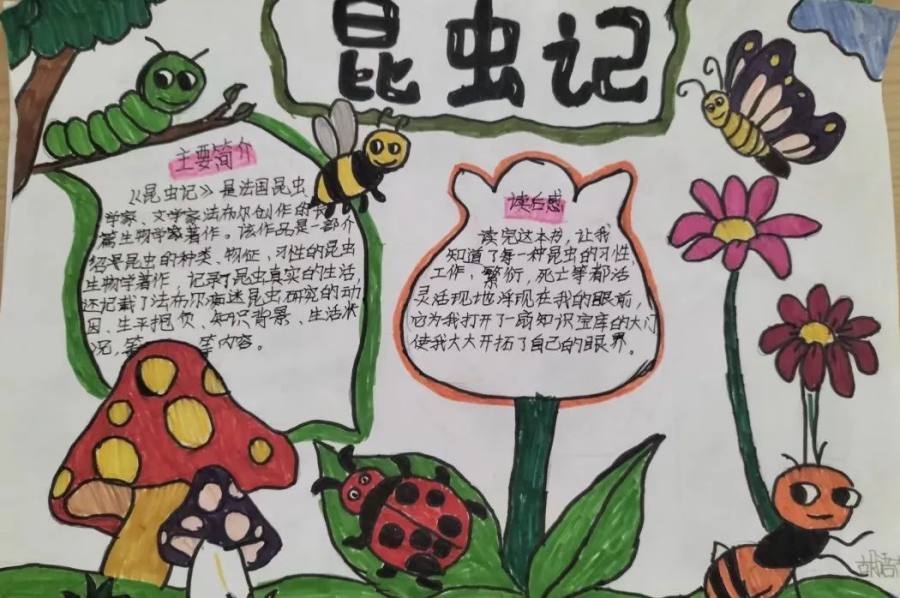 昆虫记
主要简介
《昆虫记》是法国昆虫
学家、文学家法布尔创作的长
篇生物学家著作。该作品是一部介
绍昆虫的种类、物征、习性的昆虫
生物学著作，记录了昆虫真实的生活，
还记载了法布尔痴迷昆虫研究的动
因、生平抱负、知识背景、生活状
况，等 等内容。
读后感
读完这本书，让我
知道了每一种昆虫的习性、
工作、繁衍，死亡等都活
灵活现地浮现在我的眼前，
它为我打开了一扇知识宝库的大门
使我大大开拓了自己的眼界。